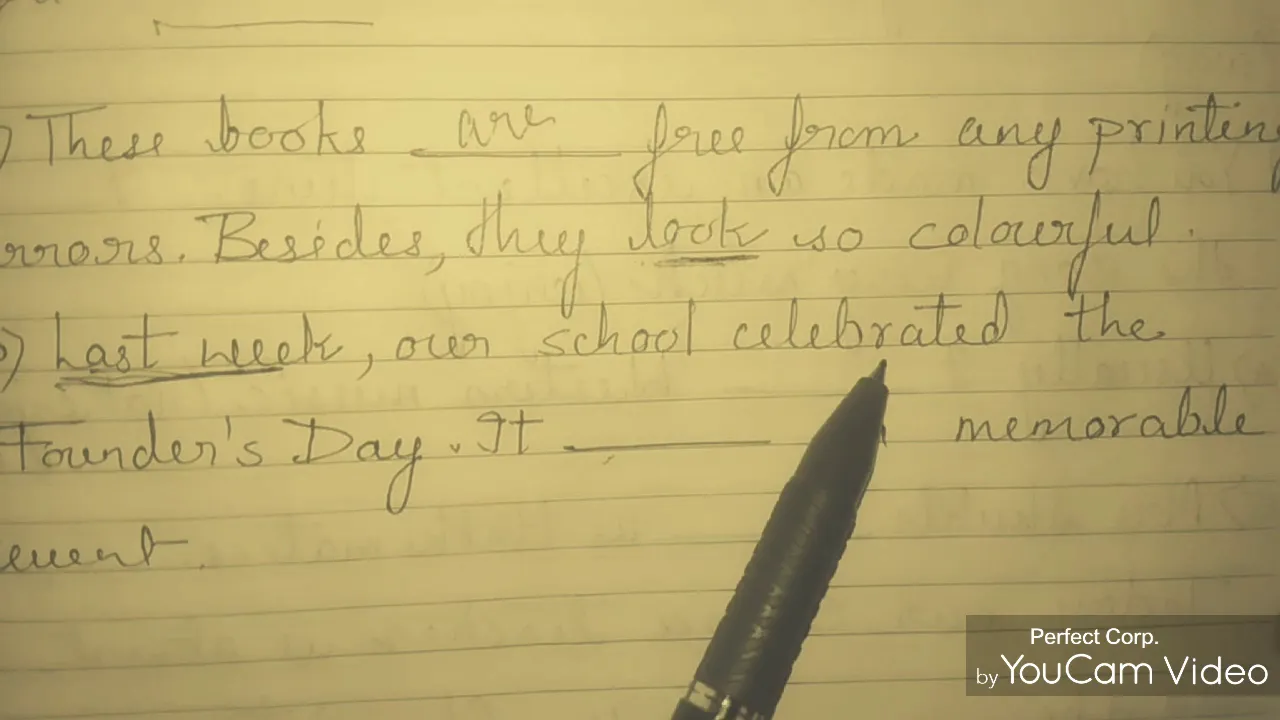 ) These books are free from any printin
rrors. Besides, they look so colourful.
) Last week, our school celebrated the
Founder's Day. It ____ memorable
event.
Perfect Corp.
by YouCam Video